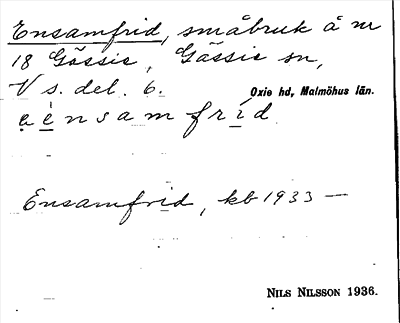 Ensamfrid, småbruk å nr
18 Gässie, Gässie sn,
V s. del. 6. Oxie hd, Malmöhus län.
ẹènsamfríd
Ensamfrid, kb 1933 —
NILS NILSSON 1936.